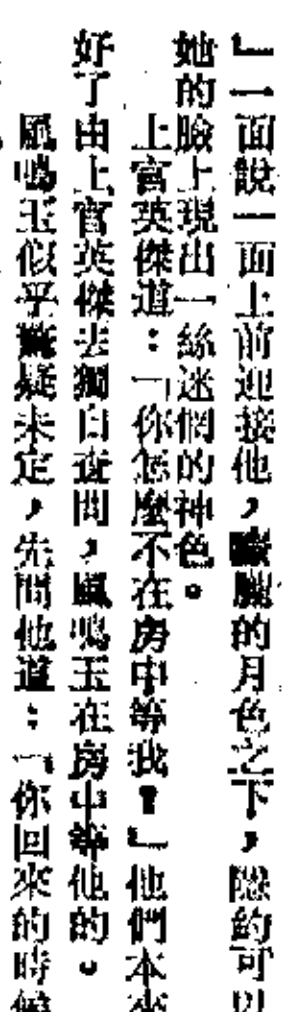 』一面說一面上前迎接他，朦朧的月色之下，隱約可以
她的臉上現出一絲迷惘的神色。
上官英傑道：「你怎麼不在房中等我？」他們本來
好了由上官英傑去獨自查問，鳳鳴玉在房中等他的。
鳳鳴玉似乎驚疑未定，先問他道：「你回來的時候